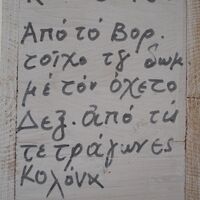 Ἀπό τό Βορ.
τοῖχο τῷ δωμ.
μέ τόν ὀχετο
Δεξ. ἀπό τώ
τετράγωνες
κολόνα